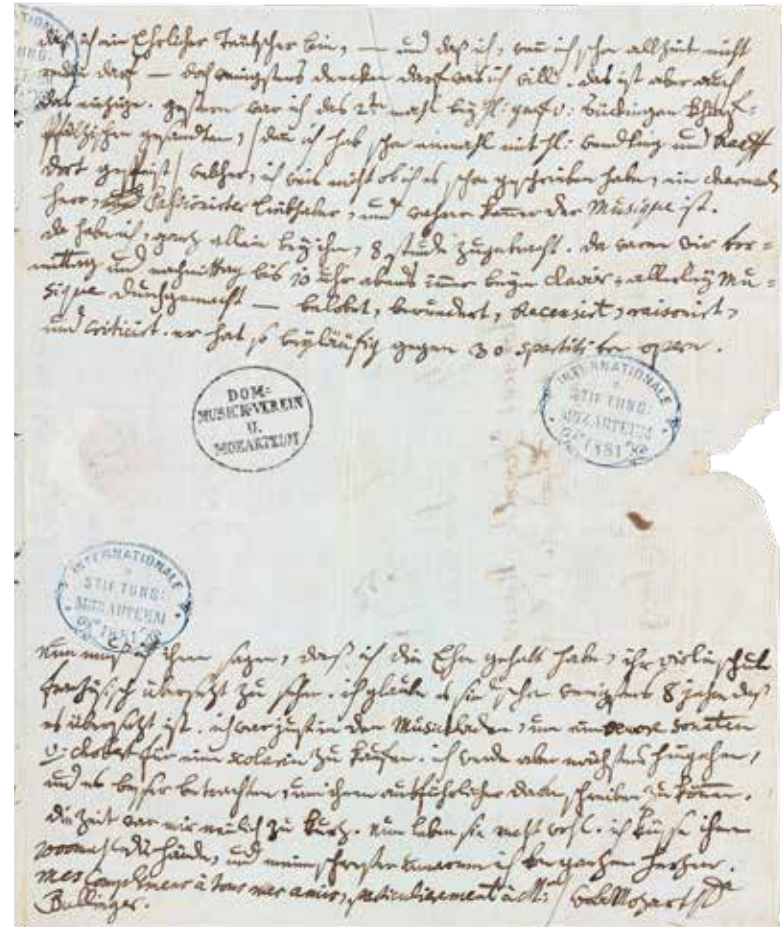 daß ich ein Ehrlicher Teütscher bin, — und daß ich, wenn ich schon allzeit nicht
reden darf — doch wenigstens dencken darf was ich will. das ist aber auch
das einzige. gestern war ich das 2:te mahl beÿ H: graf v: Sückingen Churpf=
Pfälzischen gesandten, /denn ich hab schon einmahl mit H: wendling und Raaff
dort gespeist/ welcher, ich weis nicht ob ich es schon geschrieben habe, ein charmanter
herr, Passionirter liebhaber, und wahrer kenner der Musique ist.
da habe ich, ganz allein beÿ ihm, 8 stunde zugebracht. da waren wir vor=
mittag und nachmittag bis 10 uhr abends immer beÿm clavier, allerleÿ Mu=
sique durchgemacht — belobet, bewundert, Recensirt, raisonirt,
und criticirt. er hat so beÿläufig gegen 30 spartiti von opern.
DOM=
MUSICK-VEREIN
U.
MOZARTEUM
INTERNATIONALE
STIFTUNG:
MOZARTEUM
1881
INTERNATIONALE
STIFTUNG:
MOZARTEUM
1881
Nun muß ich ihnen sagen, daß ich die Ehre gehabt habe, ihr violinschule
französisch übersetzt zu sehen. ich glaube es sind schon wenigstens 8 jahre daß
es übersetzt ist. ich war just in den Musickladen, um ein oeuvre sonaten
v: schobert für eine scolarin zu kaufen. ich werde aber nächstens hingehen,
und es besser betrachten, um ihnen ausführlicher davon schreiben zu können.
die Zeit war mir neulich zu kurz. nun leben sie recht wohl. ich küsse ihnen
1000mahl die hände, und meine schwester umarme ich von ganzem herzen.
mes Compliments à tous mes amis, particulierement à M:r
Bullinger. Mozart